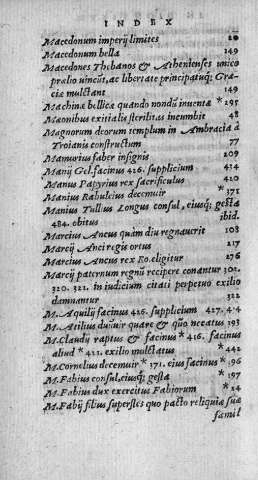 INDEX
Macedonum imperij limites 20
Macedonum bella 149
Macedones Thebanos & Athenienses unico
prælio uincūt, ac libertate principatuq; Græ-
cia mulctant 149
Machinæ bellicæ quando nondū inuentæ * 295
Mæonibus exitialis sterilitas incumbit 48
Magnorum deorum templum in Ambracia à
Troianis constructum 77
Mamurius faber insignis 209
Manij Gel. facinus 426. supplicium 434
Manius Papyrius rex sacrificulus 420
Manius Rabuleius decemuir * 371
Manius Tullius Longus consul, eiusq; gesta
484. obitus ibid.
Marcius Ancus quàm diu regnauerit 108
Marcij Anci regis ortus 217
Marcius Ancus rex Ro. eligitur 276
Marcij paternum regnū recipere conantur 302.
320. 322. in iudicium citati perpetuo exilio
damnantur 322
M. Aquilij facinus 426. supplicium 427. 434
M. Atilius duiuir quare & quo necatus 393
M. Claudij raptus & facinus * 416. facinus
aliud * 421. exilio mulctatus * 442
M. Cornelius decemuir * 371. eius facinus * 396
M. Fabius consul, eiusq; gesta * 197
M. Fabius dux exercitus Fabiorum * 24
M. Fabij filius superstes quo pacto reliquiæ suæ
famil